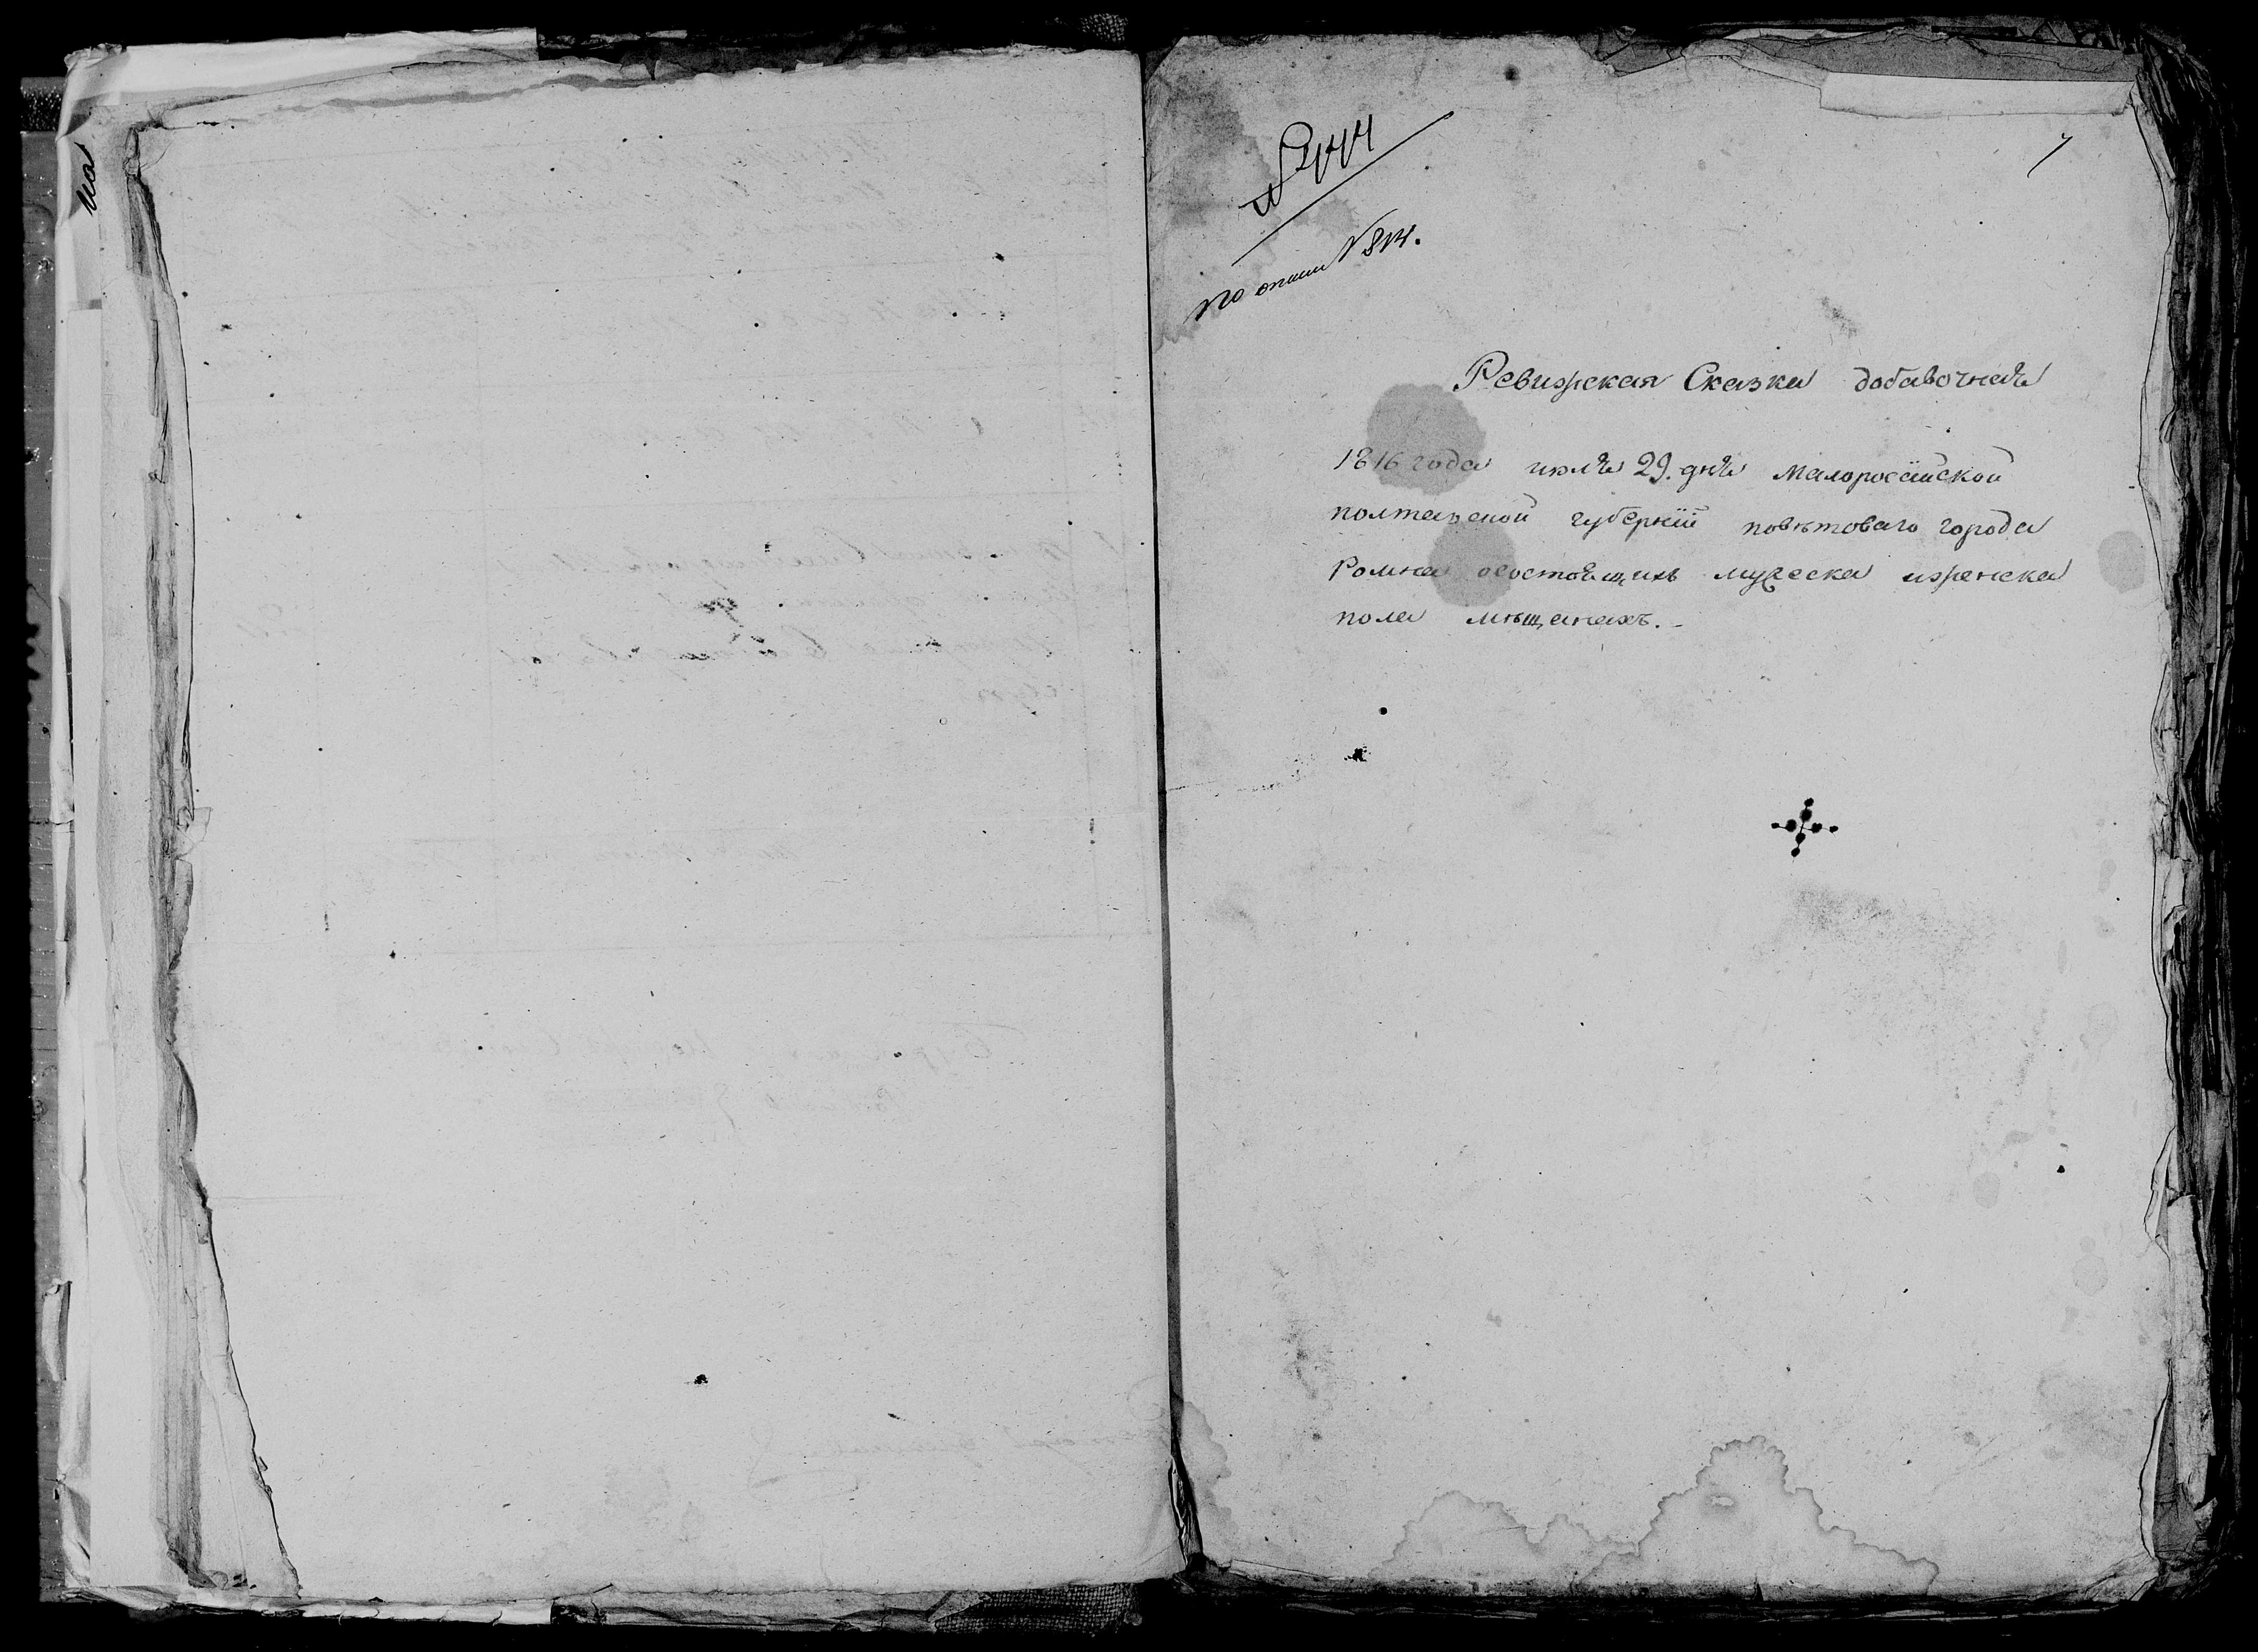 № 444
по описи № 814.
Ревижская Сказка добавочная
1816 года июля 29. дня Малоросїйской
полтавской губернїи повѣтоваго города
Ромна осостоящихъ мужеска иженска
пола мѣщанахъ.